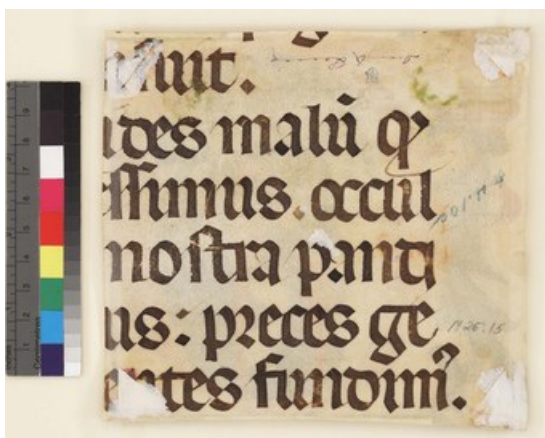 uit.
ides malū q
ssimus. occul
nostra pandi
us: preces ge
entes fundim᷒.
M 25:15